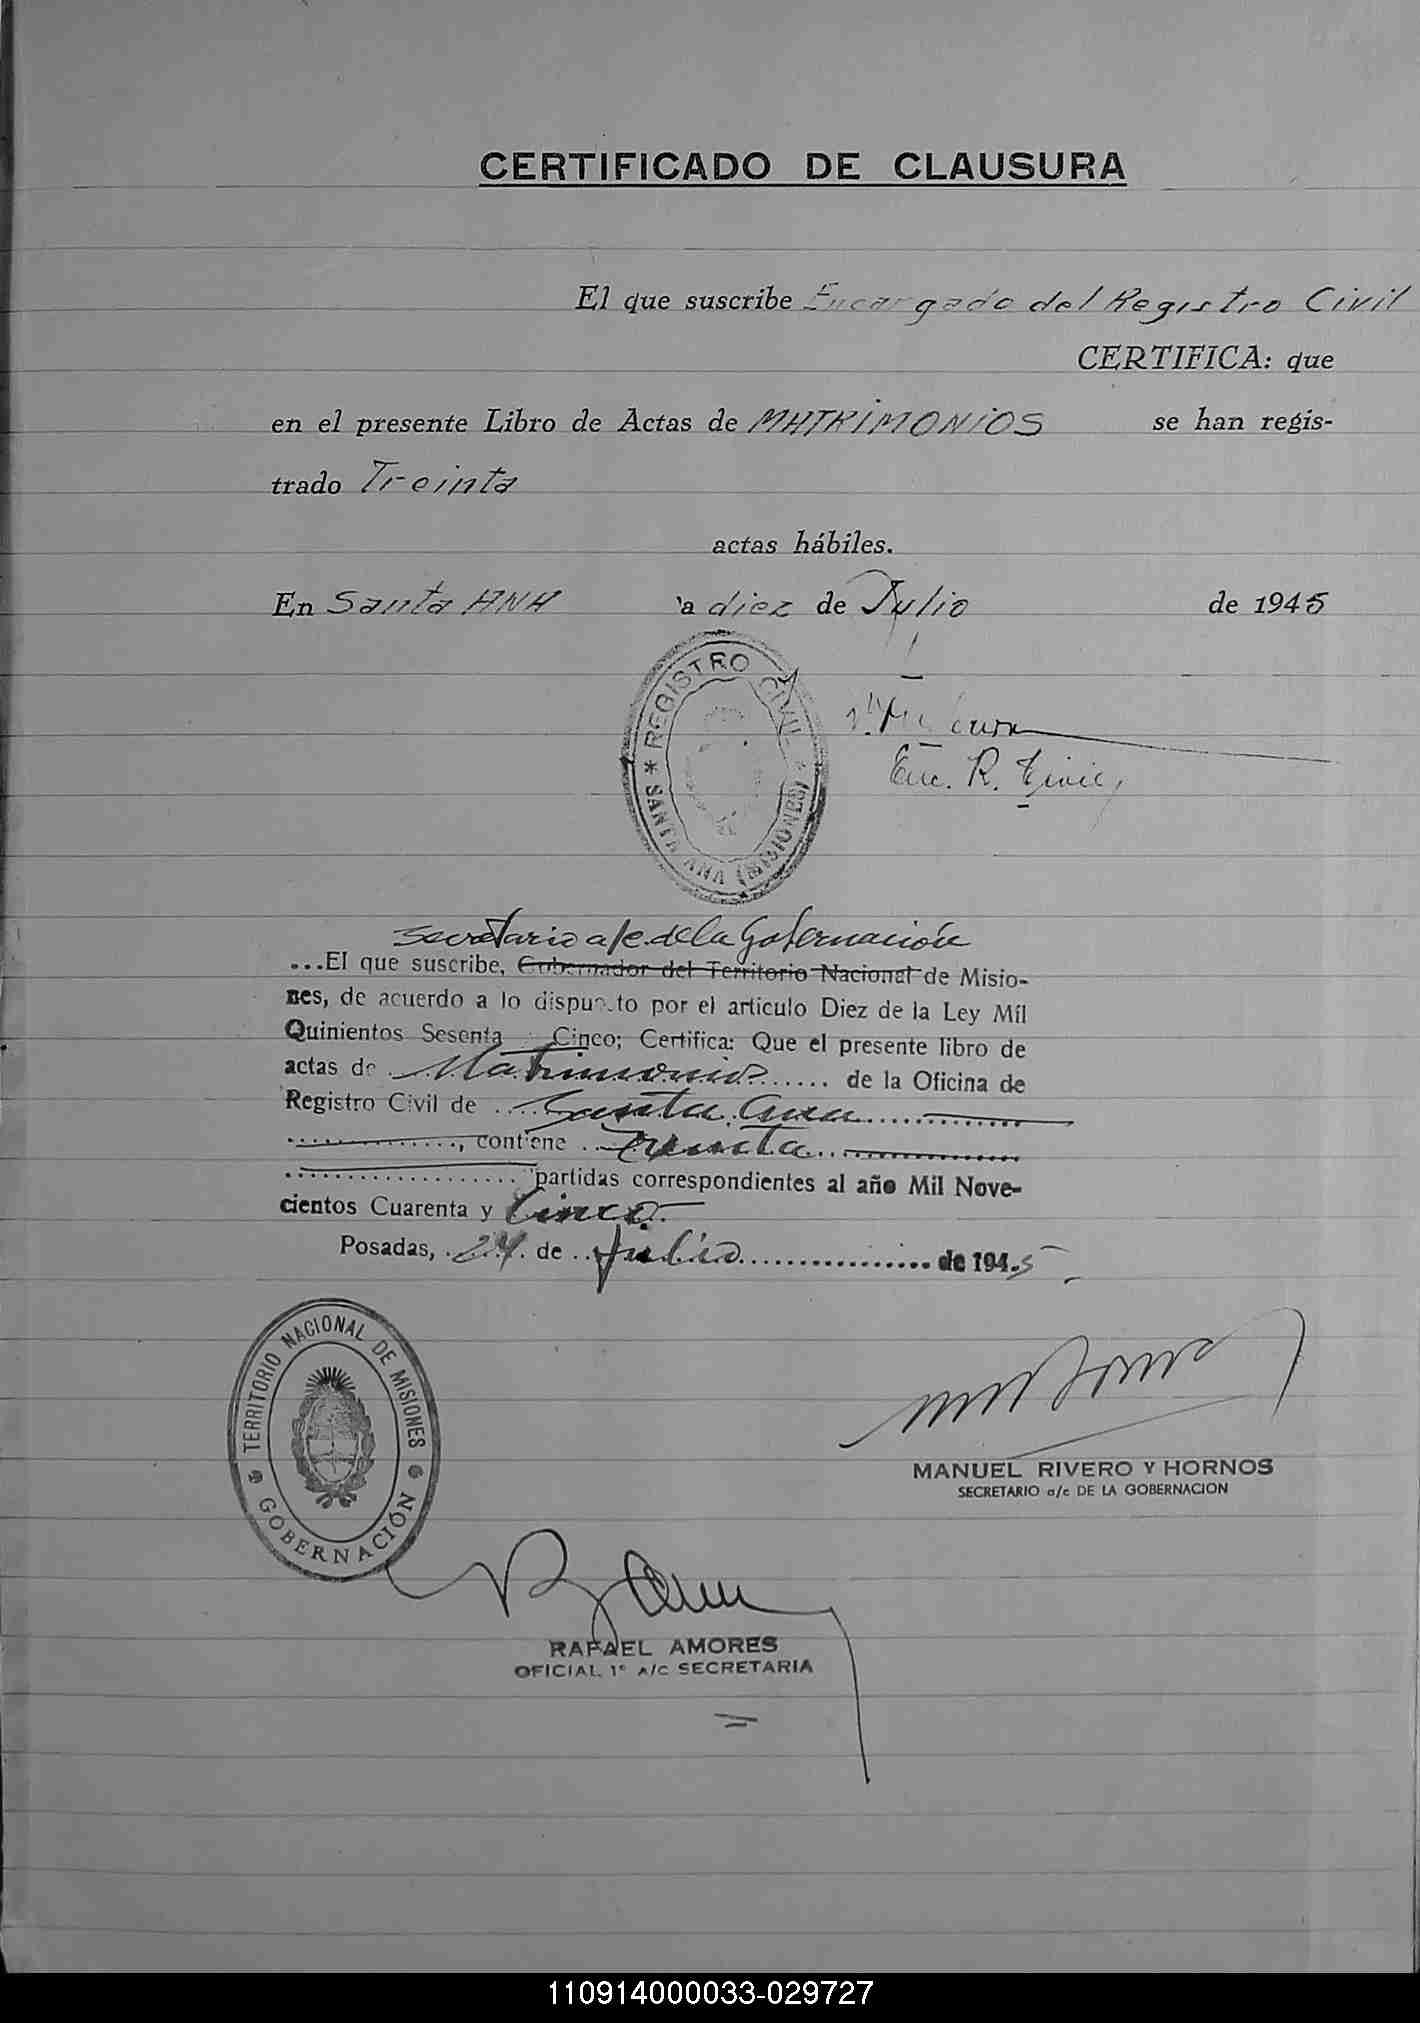 CERTIFICADO DE CLAUSURA
El que suscribe Encargado del Registro Civil
CERTIFICA: que
en el presente Libro de Actas de MATRIMONIOS se han regis-
trado Treinta
actas hábiles.
En Santa ANA a diez de Julio de 1945
REGISTRO CIVIL
* SANTA ANA (MISIONES) *
Enc. R. Civil
Secretario a/c. de la Gobernación
...El que suscribe, Gobernador del Territorio Nacional de Misio-
nes, de acuerdo a lo dispuesto por el artículo Diez de la Ley Mil
Quinientos Sesenta Cinco; Certifica: Que el presente libro de
actas de Matrimonios...... de la Oficina de
Registro Civil de .... Santa Ana
, contiene Treinta
partidas correspondientes al año Mil Nove-
cientos Cuarenta y Cinco.
Posadas, 24 de Julio de 1945
TERRITORIO NACIONAL DE MISIONES
GOBERNACIÓN
MANUEL RIVERO Y HORNOS
SECRETARIO a/c DE LA GOBERNACION
RAFAEL AMORES
OFICIAL 1° A/C SECRETARIA
110914000033-029727